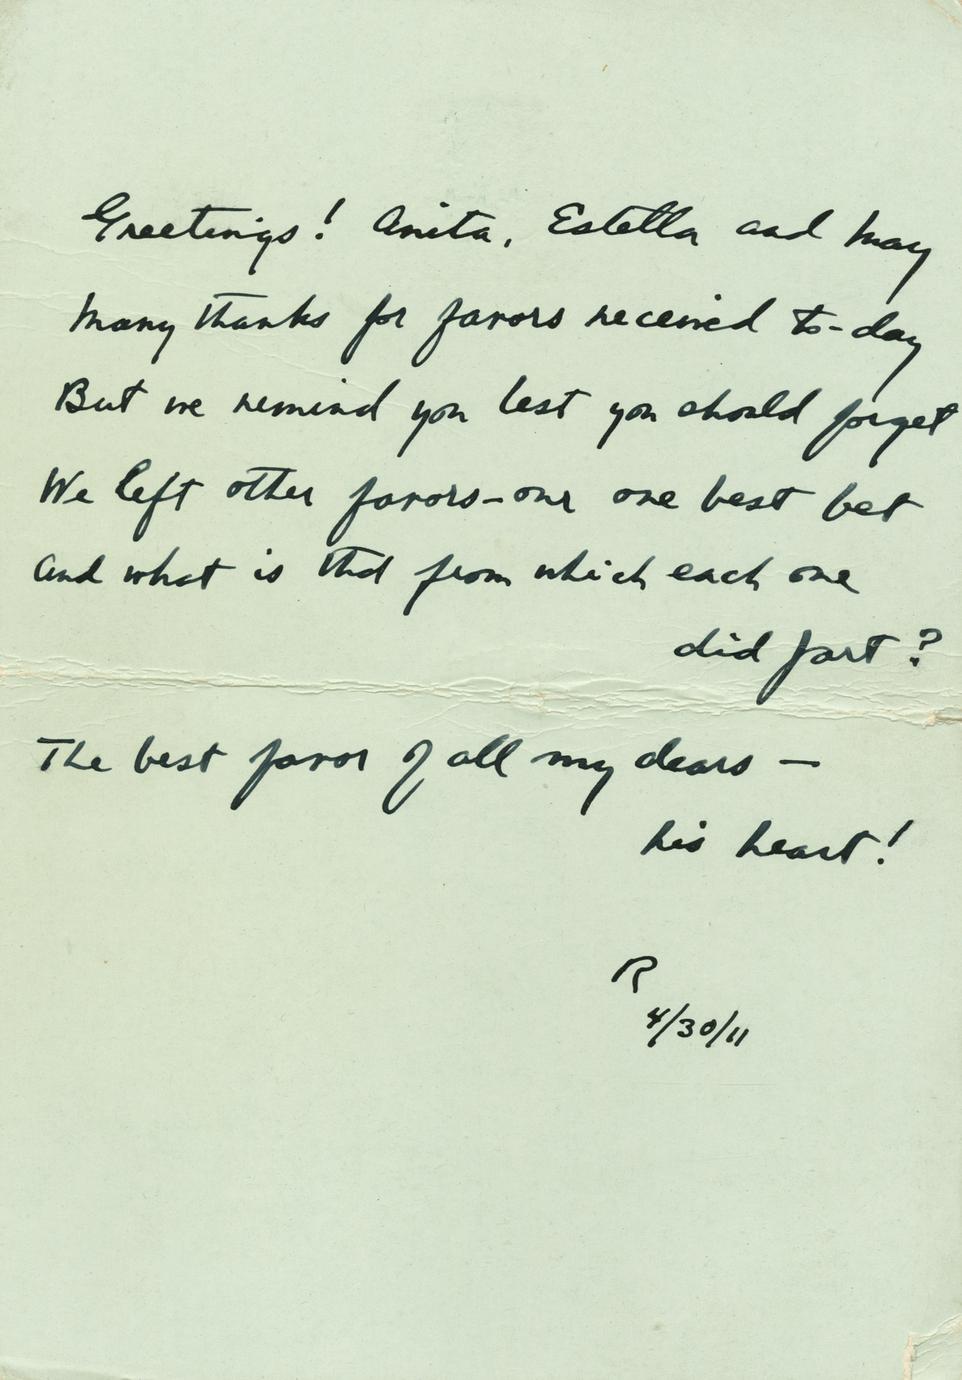 Greetings! Anita, Estella and May
Many thanks for favors received to-day
But we remind you lest you should forget
We left other favors—our one best bet
And what is that from which each one
did part?
The best favor of all my dears —
his heart!
R
4/30/11